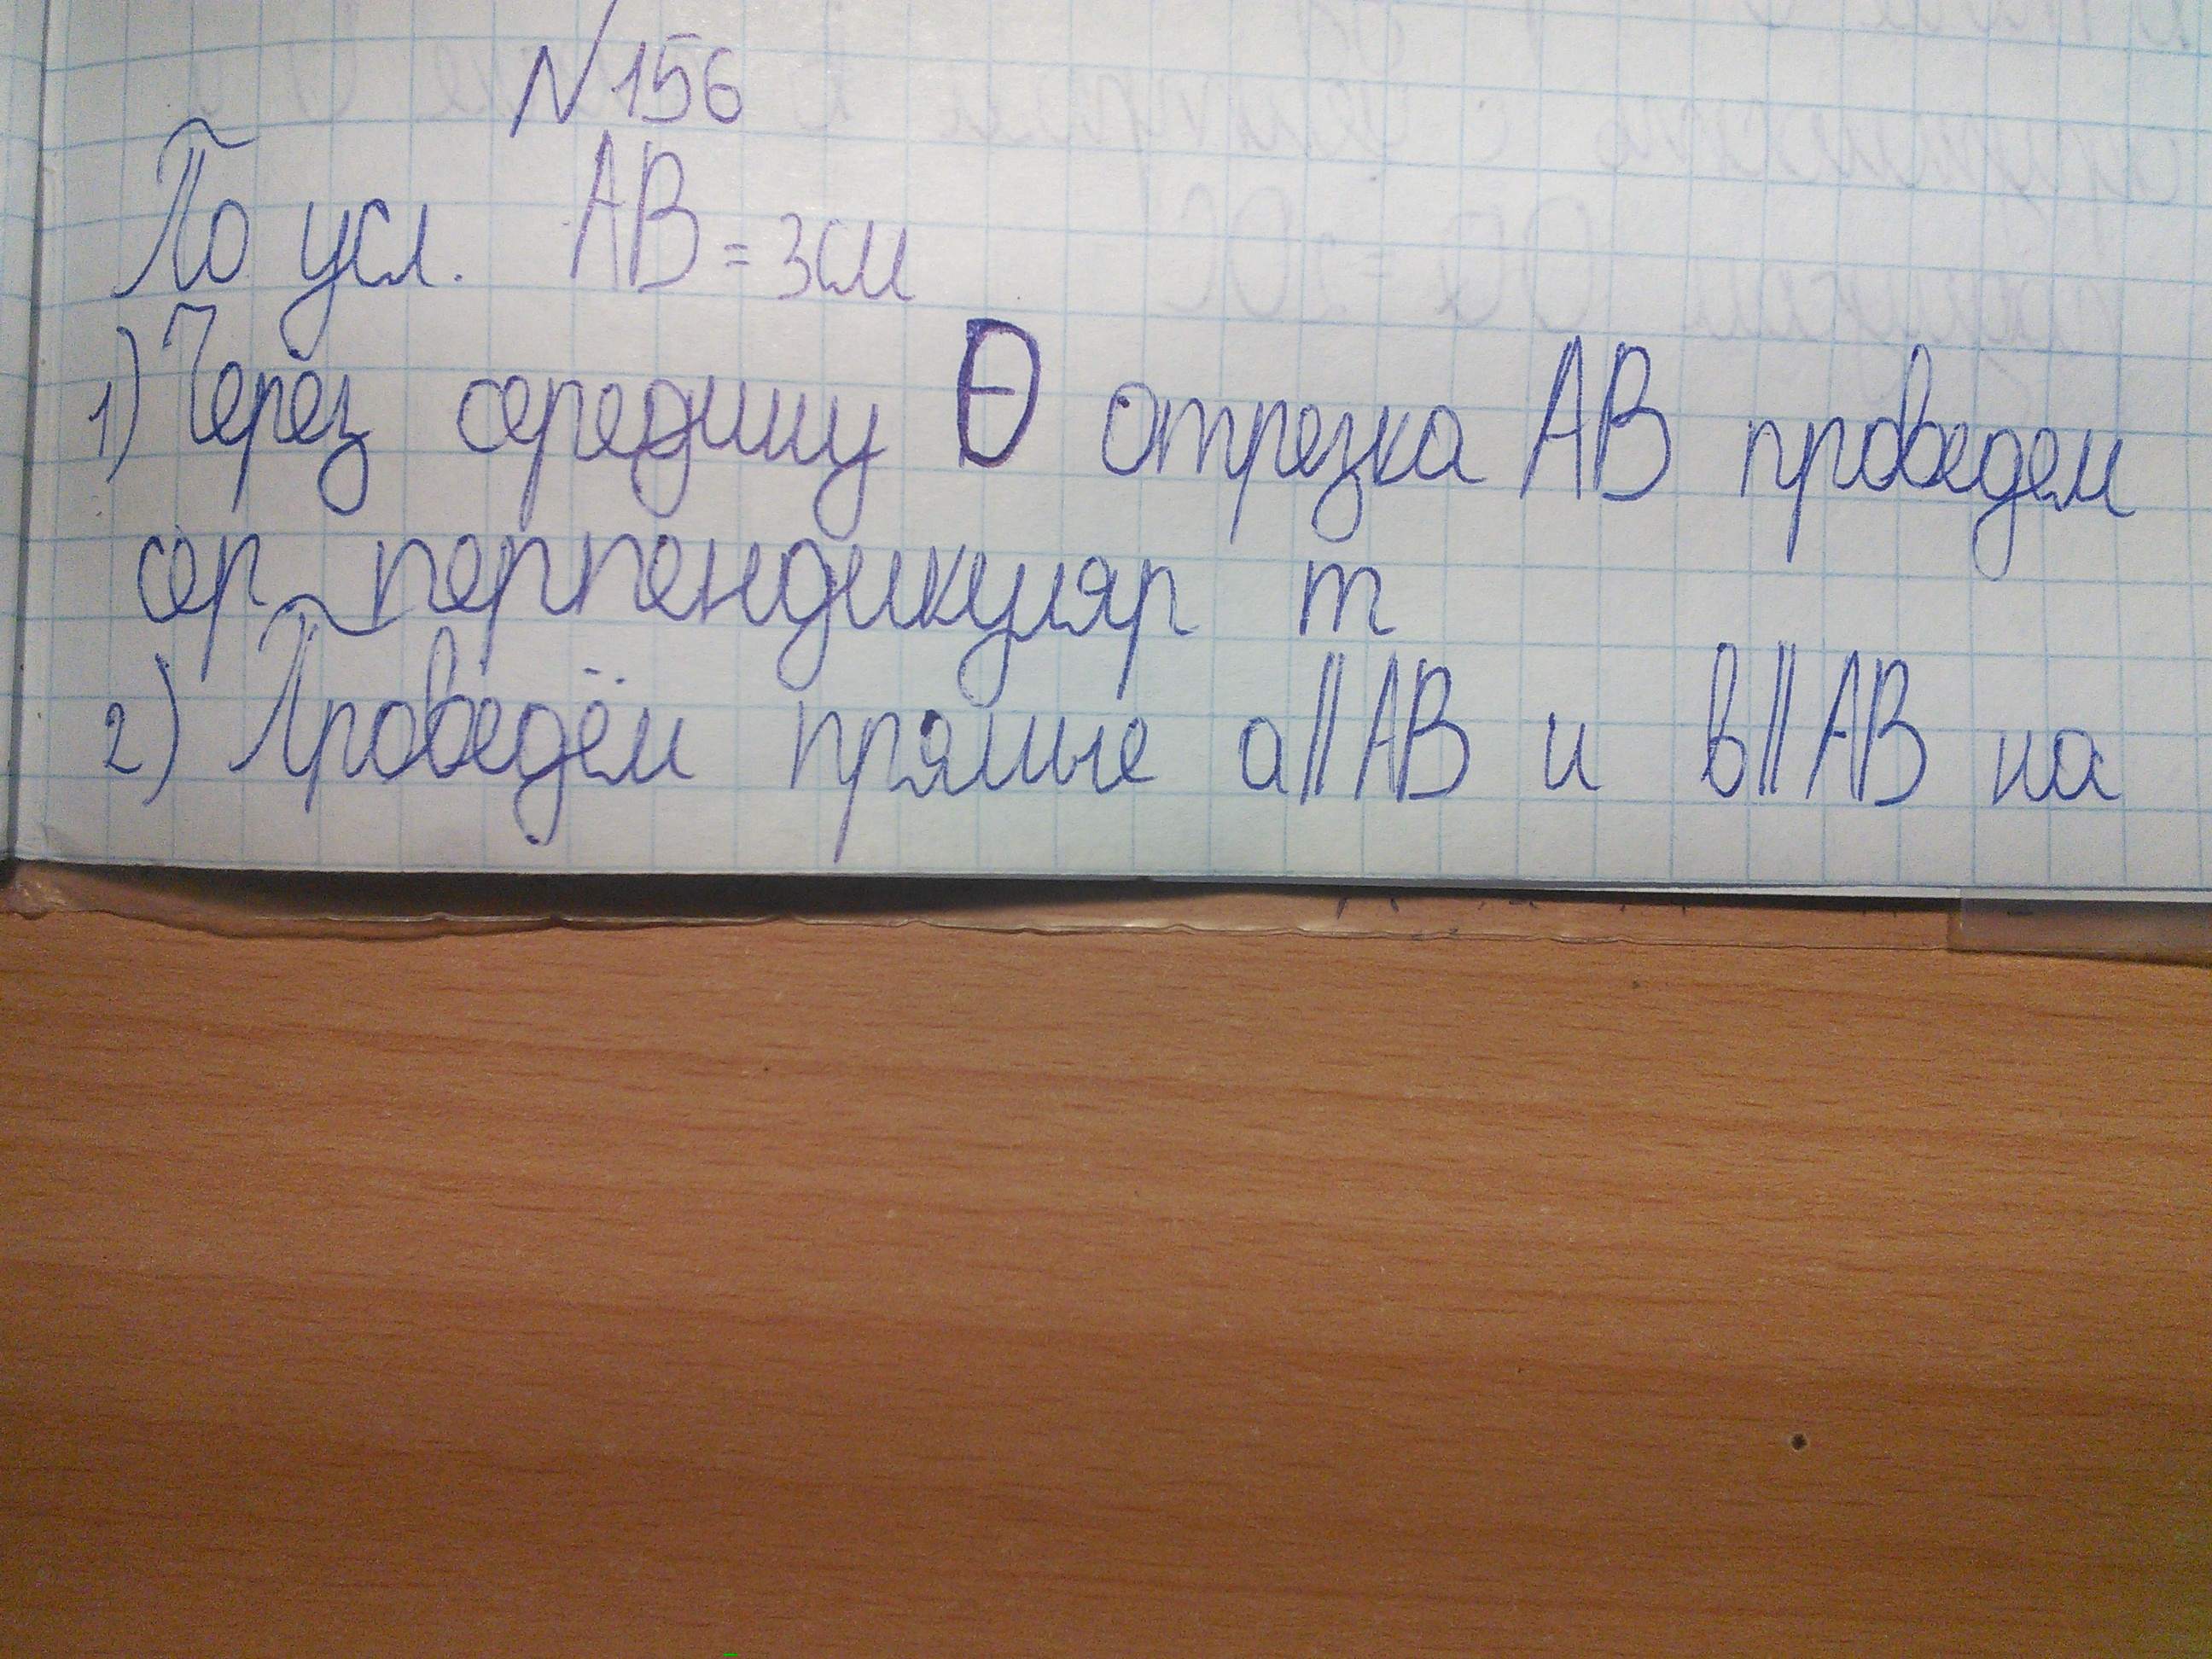 №156
По усл. АВ = 3см
1) Через середину О отрезка АВ проведем
сер перпендикуляр m
2) Проведём прямые a||АВ и в||АВ на